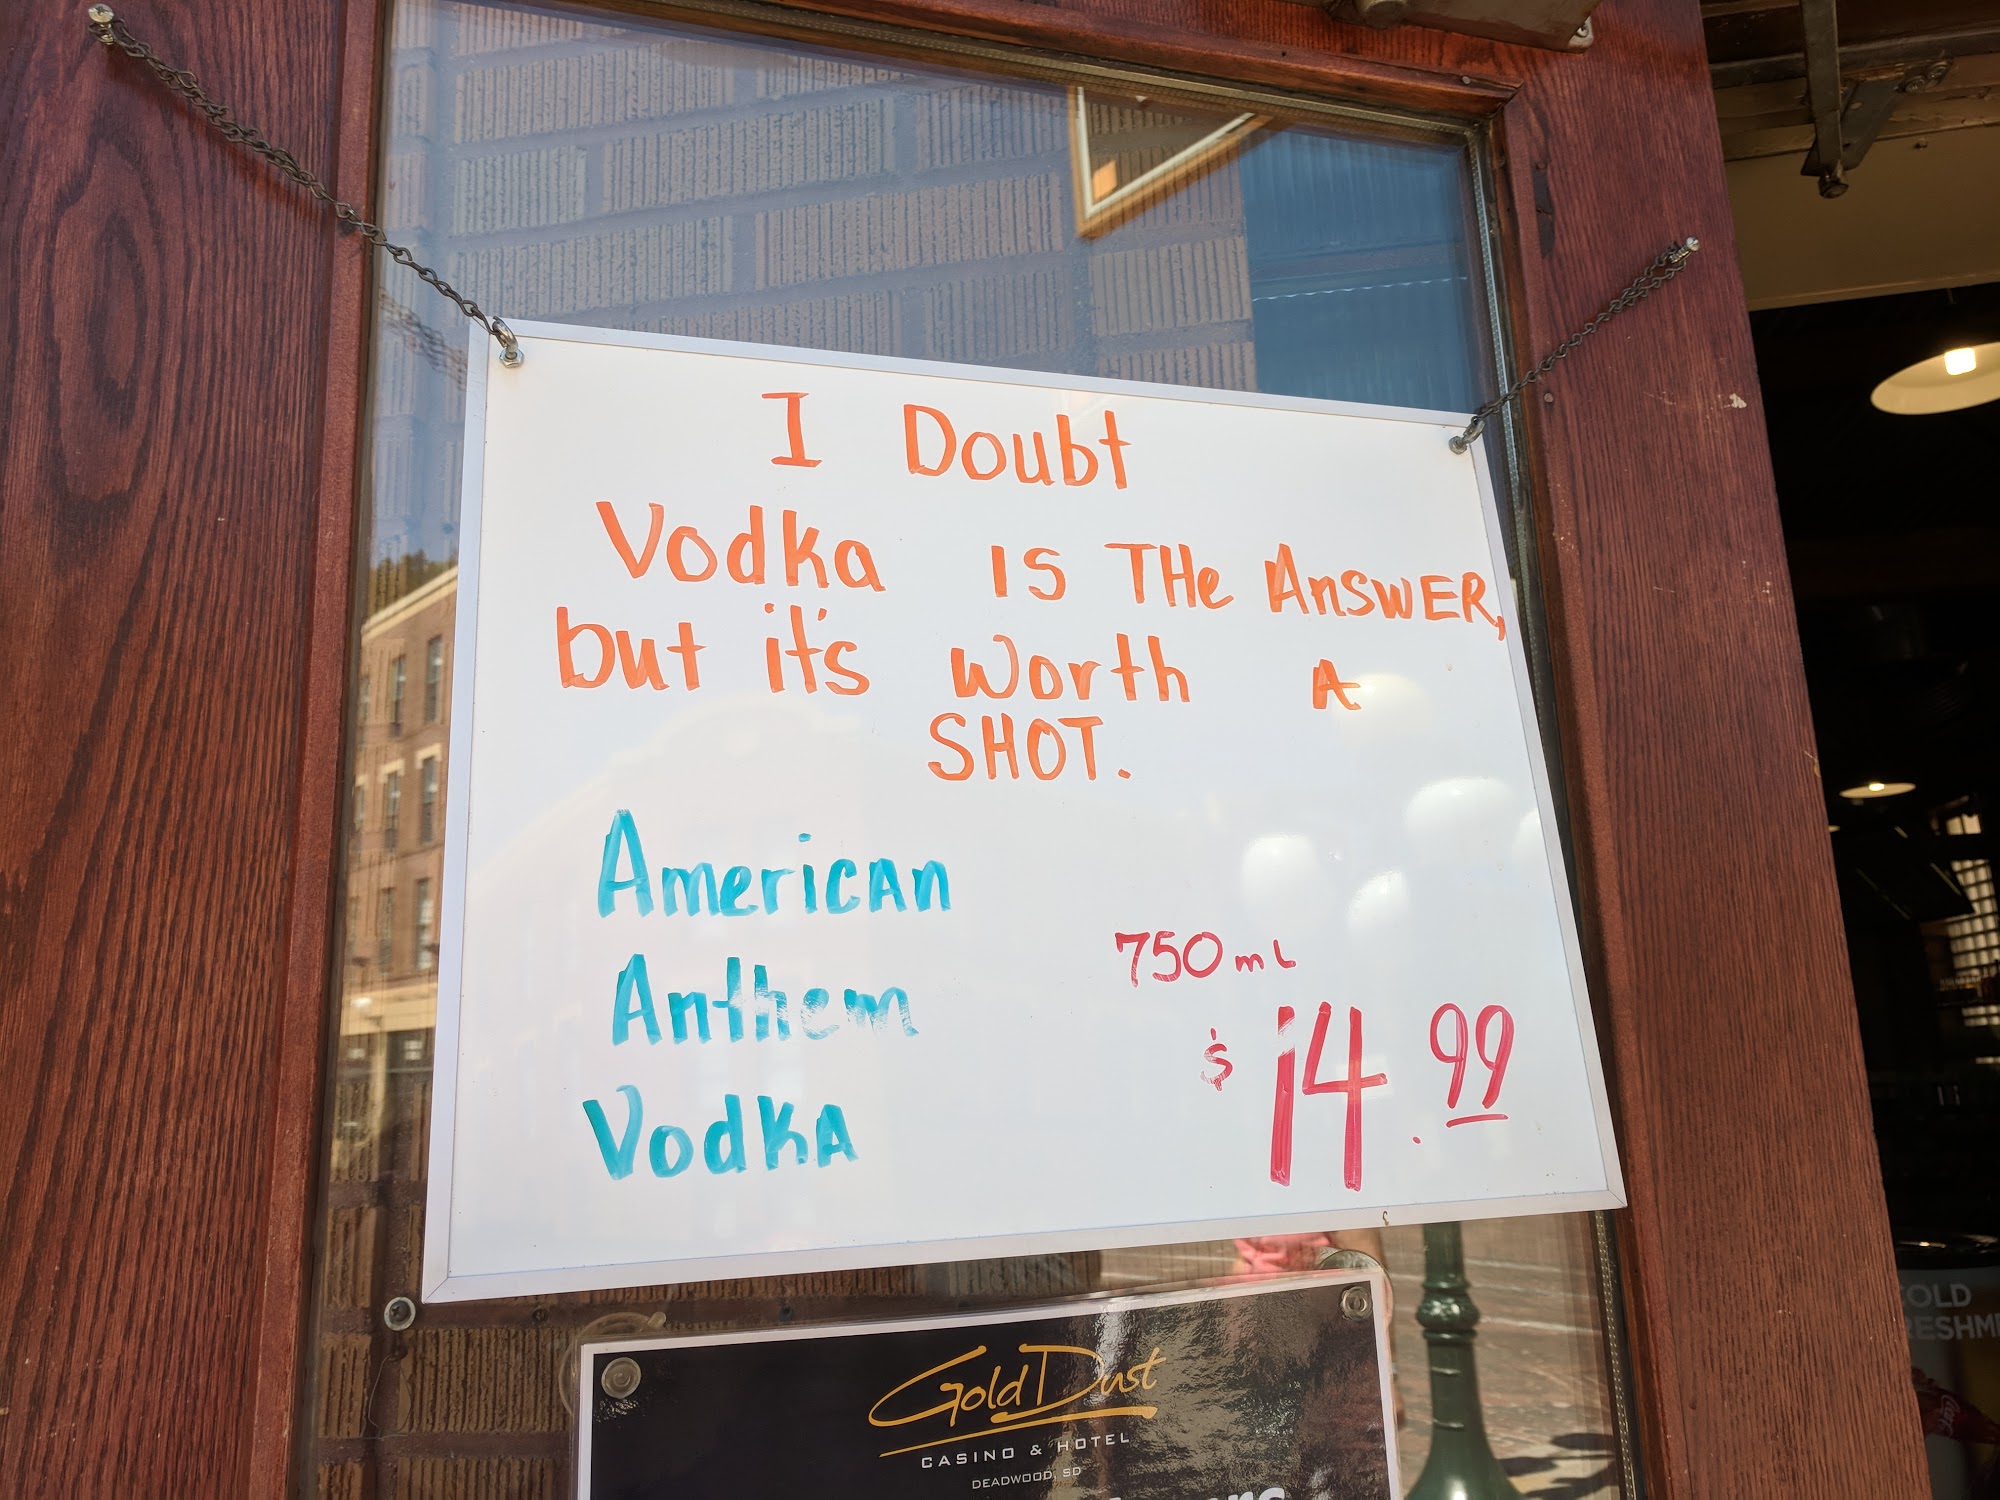 I Doubt
Vodka is THe AnSWER,
but it's worth A
SHOT.
American
Anthem
Vodka
750 mL
$14.99
Gold Dust
CASINO & HOTEL
DEADWOOD, SD
OLD
RESHM